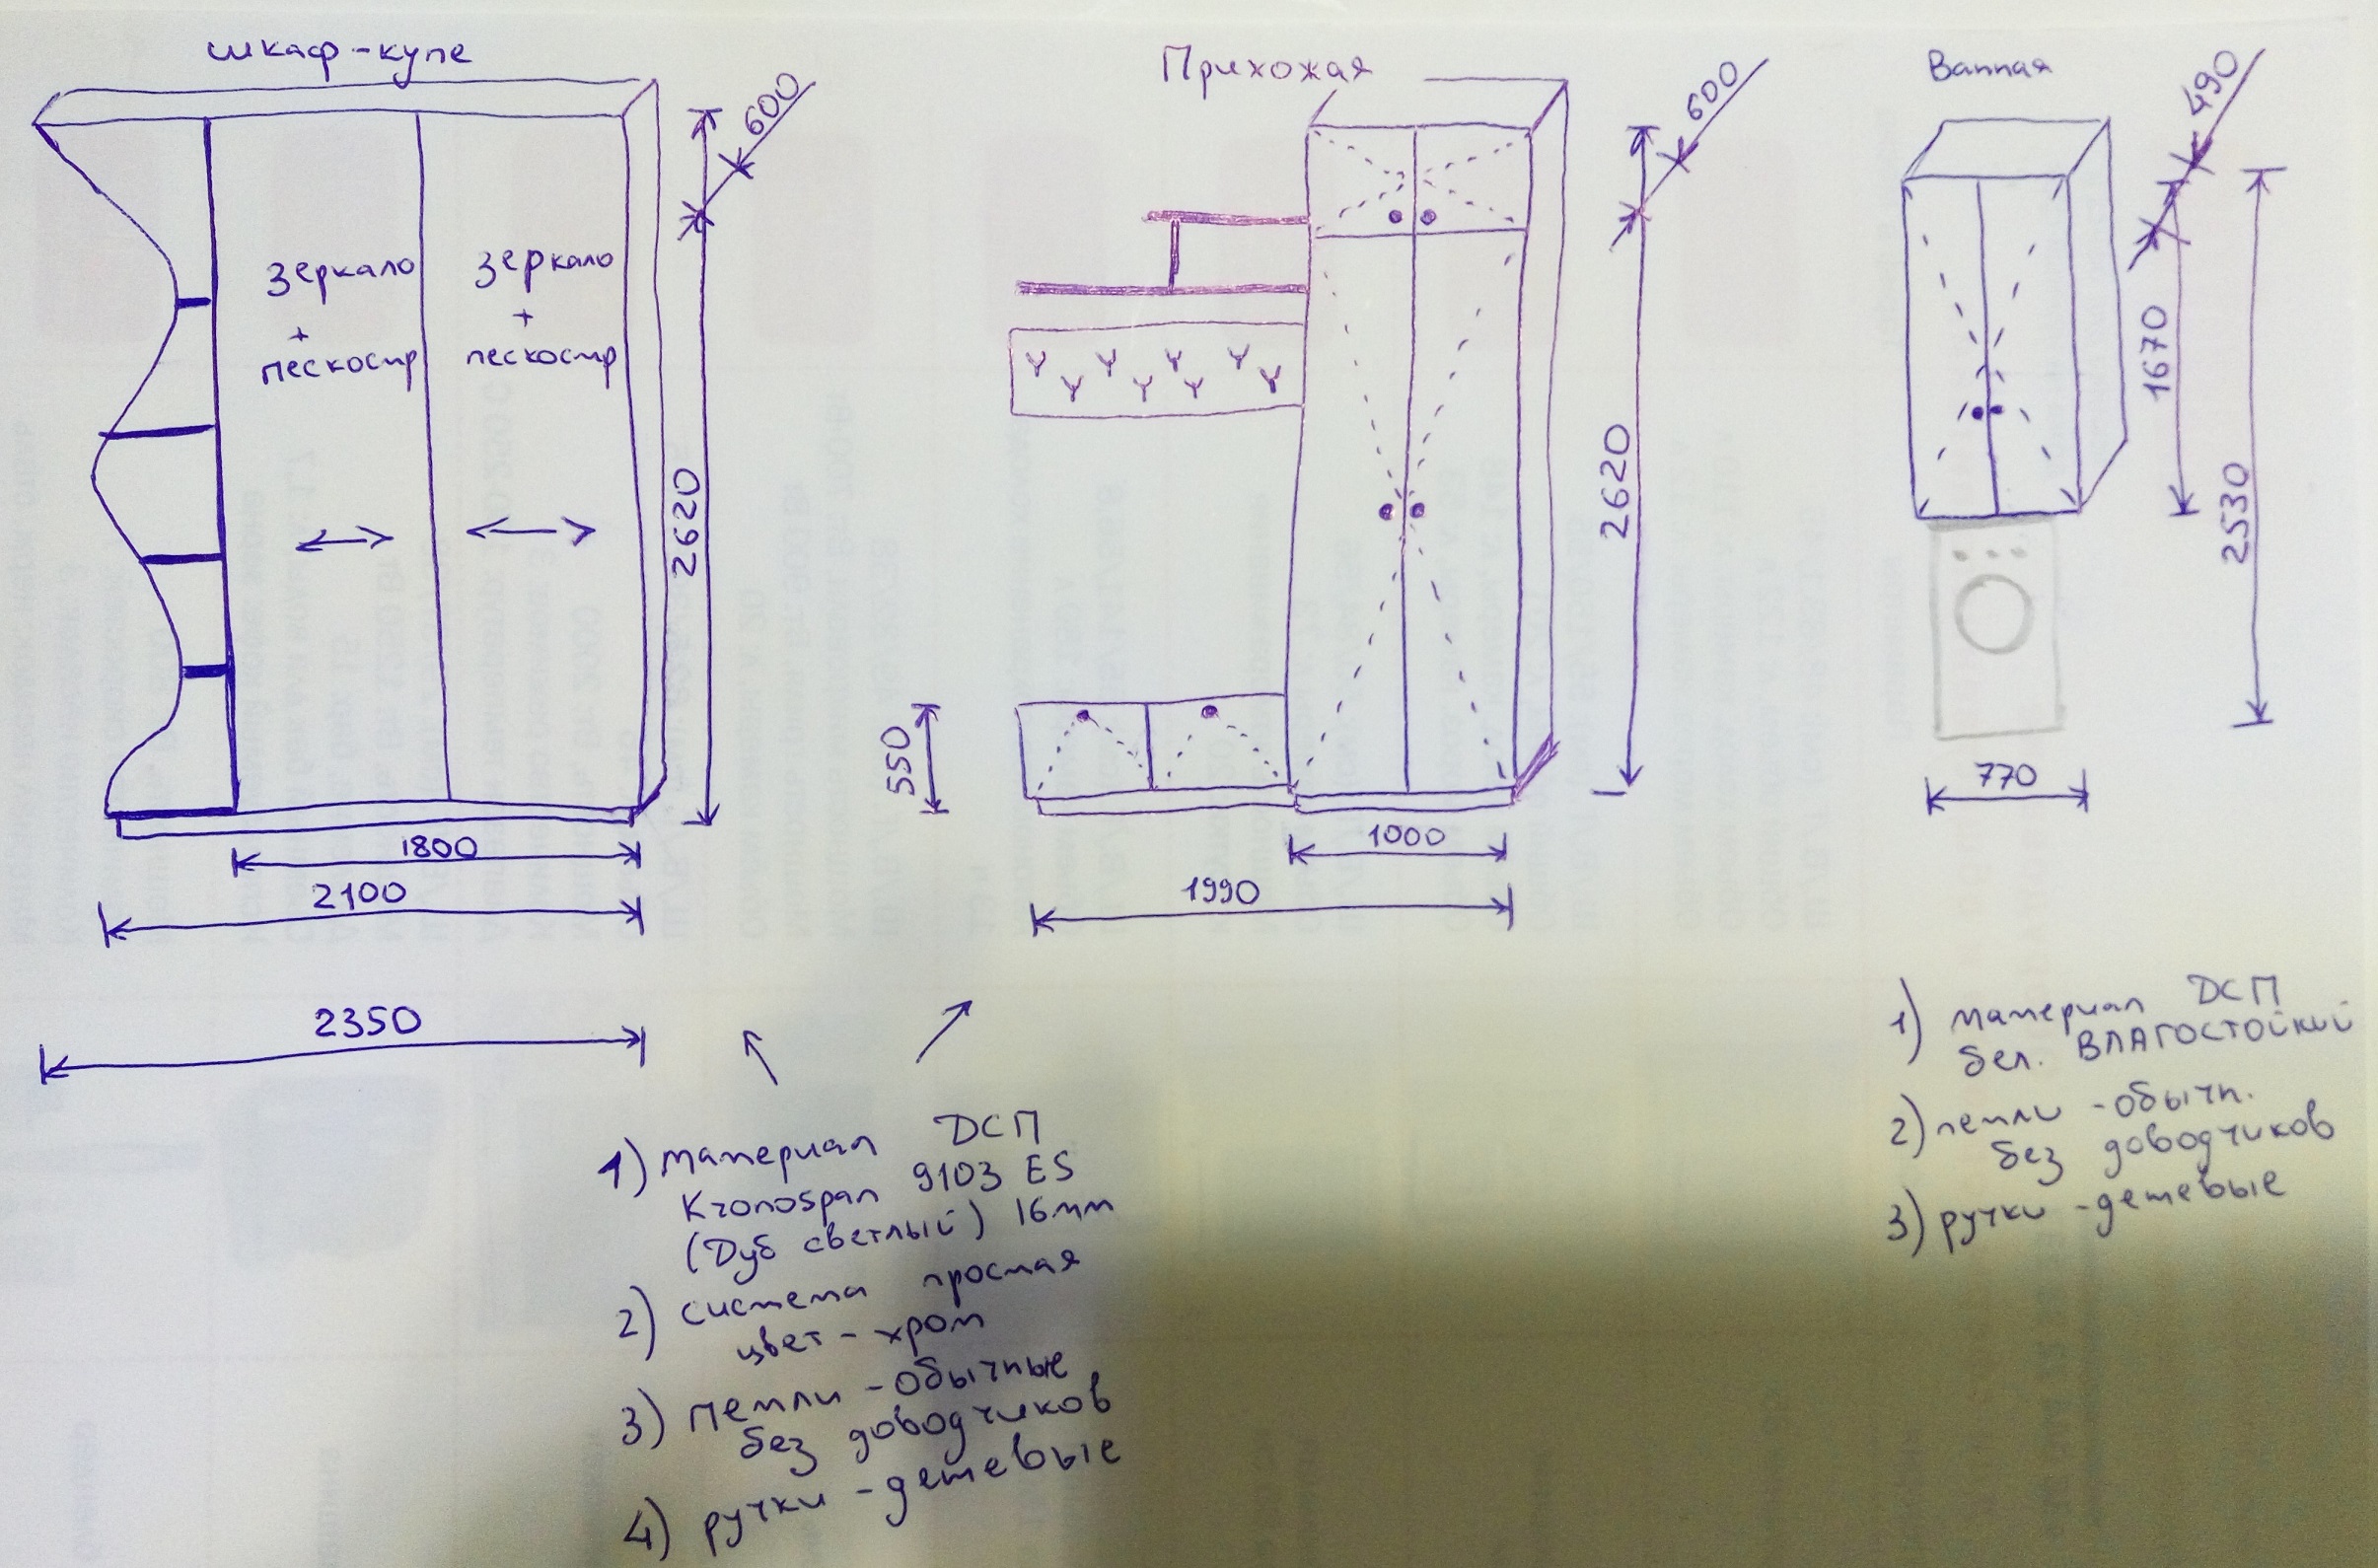 шкаф-купе
600
зеркало
+
пескостр
зеркало
+
пескостр
2620
1800
2100
2350
Прихожая
600
2620
550
1000
1990
Ванная
490
1670
2530
770
1) материал ДСП
Kronospan 9103 ES
(Дуб светлый) 16мм
2) система простая
цвет - хром
3) петли - обычные
без доводчиков
4) ручки - дешевые
1) материал ДСП
бел. ВЛАГОСТОЙКИЙ
2) петли - обычн.
без доводчиков
3) ручки - дешевые